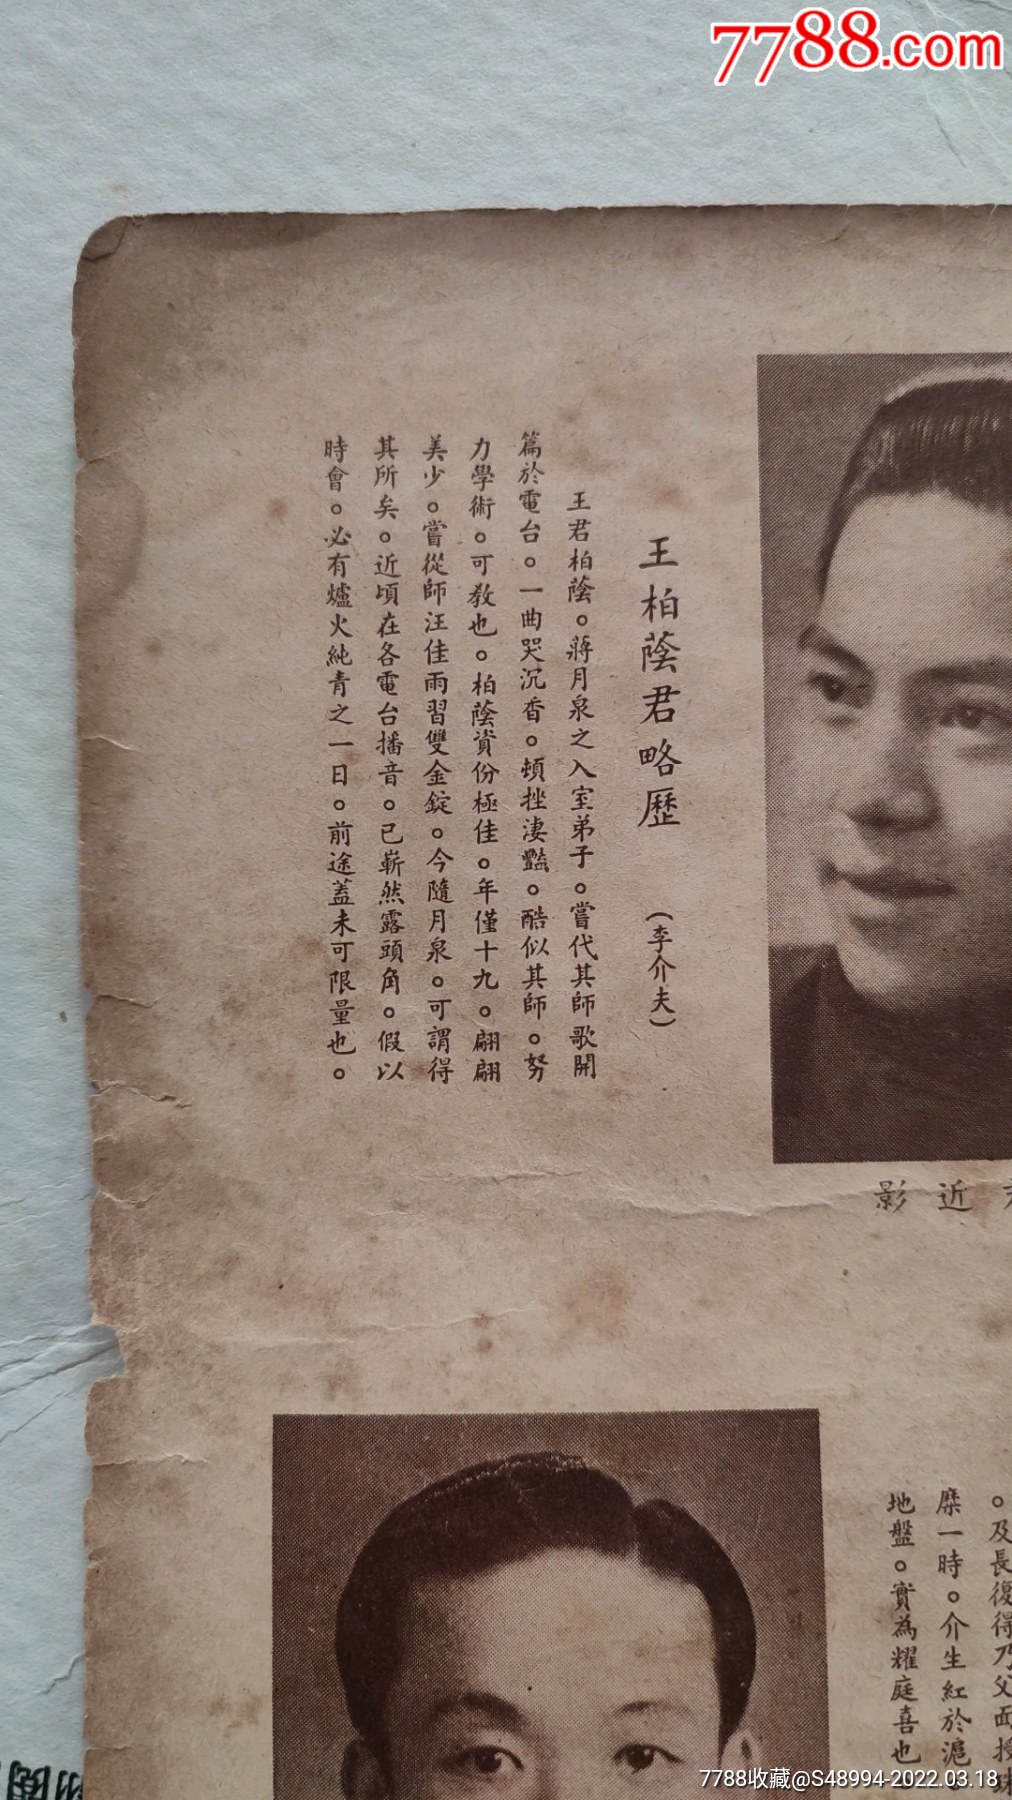 7788.com
王柏蔭君略歷 (李介夫)
王君柏蔭。蔣月泉之入室弟子。嘗代其師歌開
篇於電台。一曲哭沉香。頓挫淒豔。酷似其師。努
力學術。可教也。柏蔭資份極佳。年僅十九。翩翩
美少。嘗從師汪佳雨習雙金錠。今隨月泉。可謂得
其所矣。近頃在各電台播音。已嶄然露頭角。假以
時會。必有爐火純青之一日。前途蓋未可限量也。
影近
。及長復得乃父面授
糜一時。介生紅於滬
地盤。實為耀庭喜也
7788收藏@S48994-2022.03.18